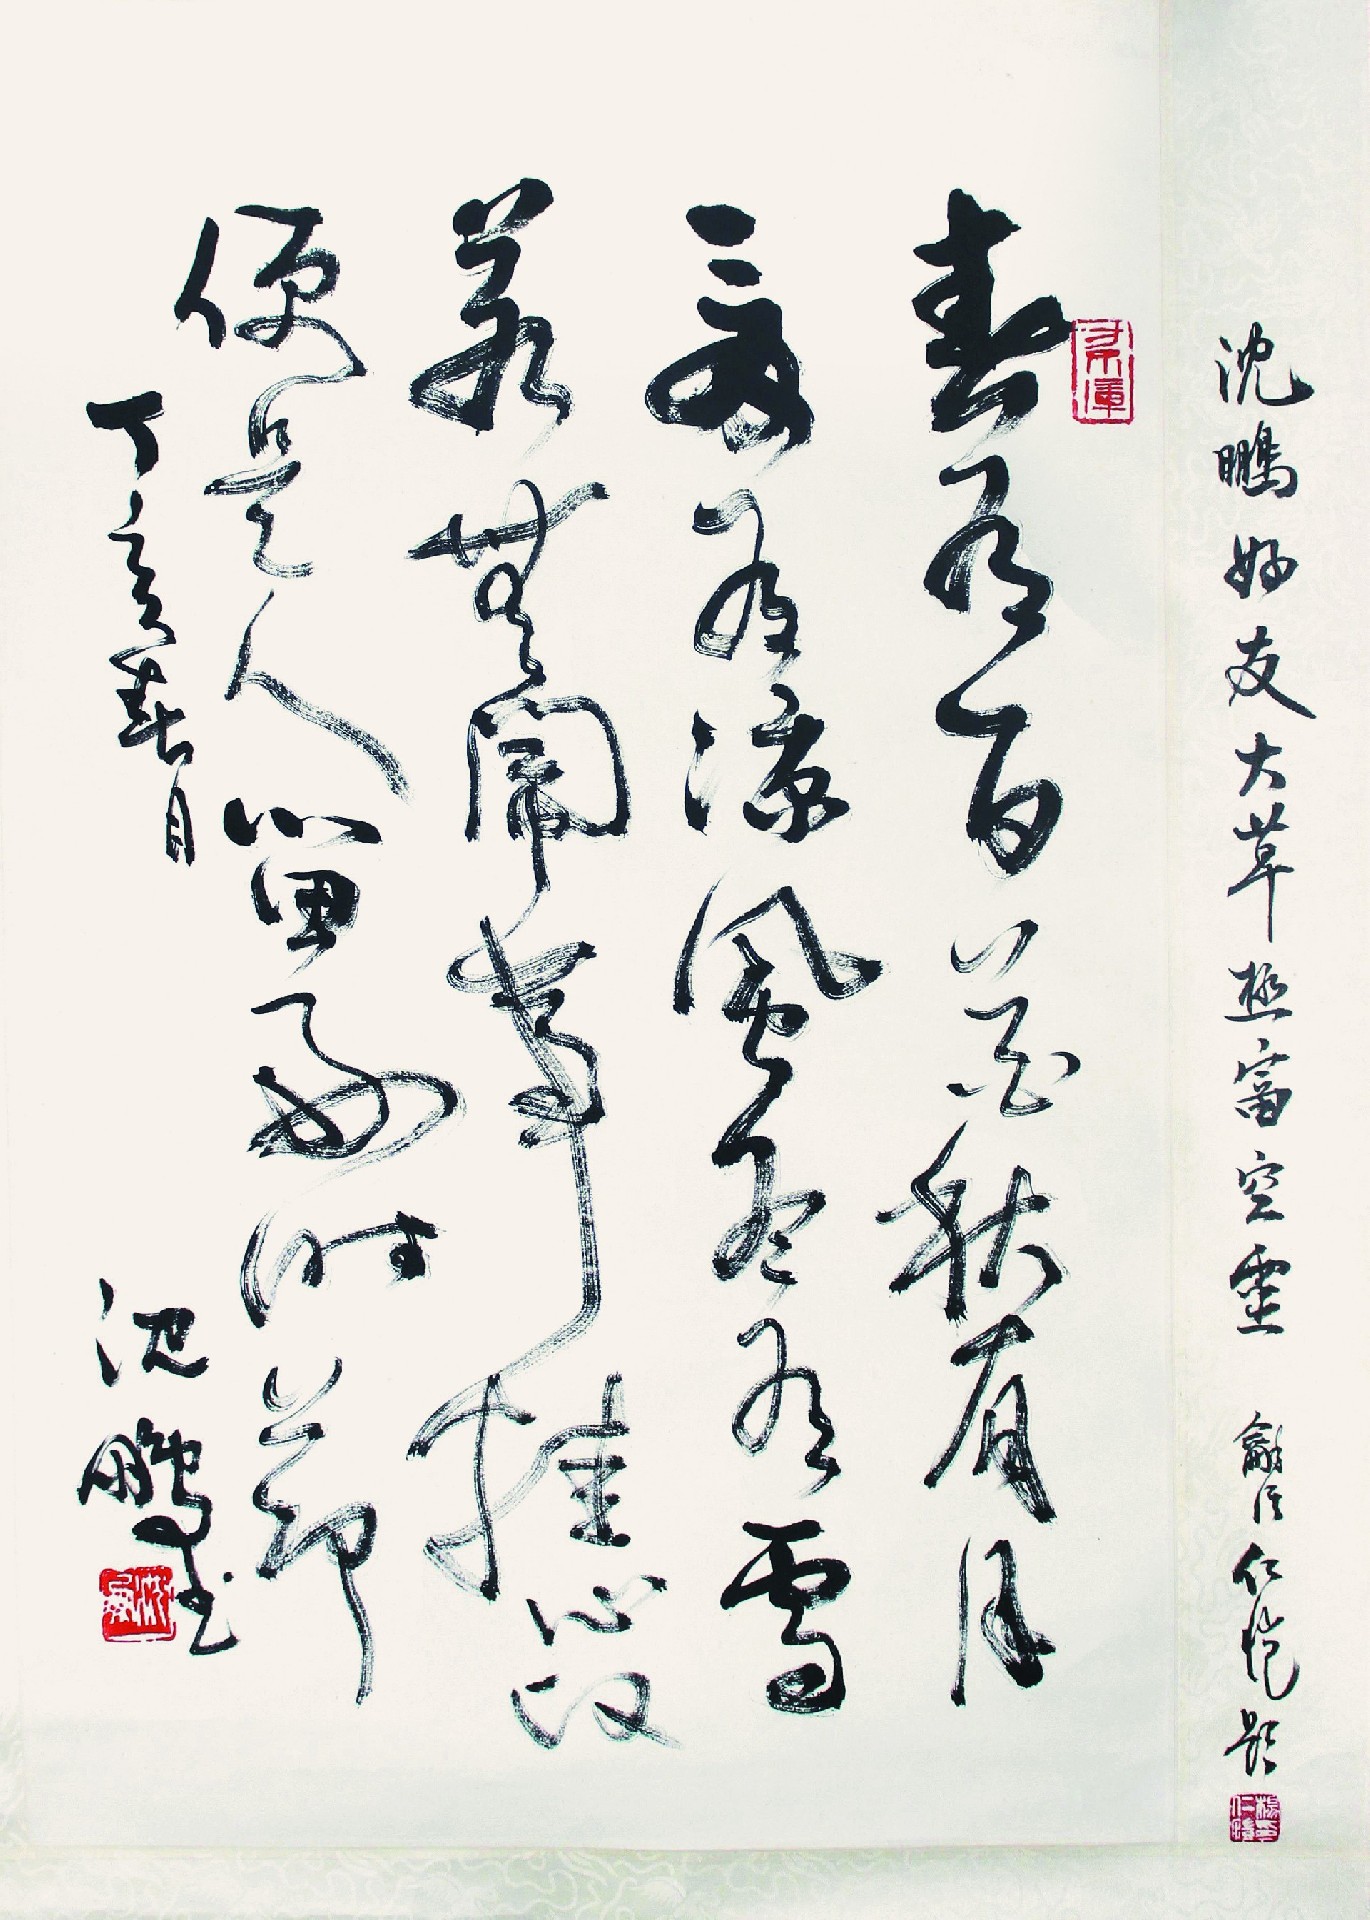 沈鵬好友大草極富空靈 龢溪仁愷題
春有百花秋有月
夏有涼風冬有雪
若無閑事挂心頭
便是人間好時節
丁亥春月
沈鵬書